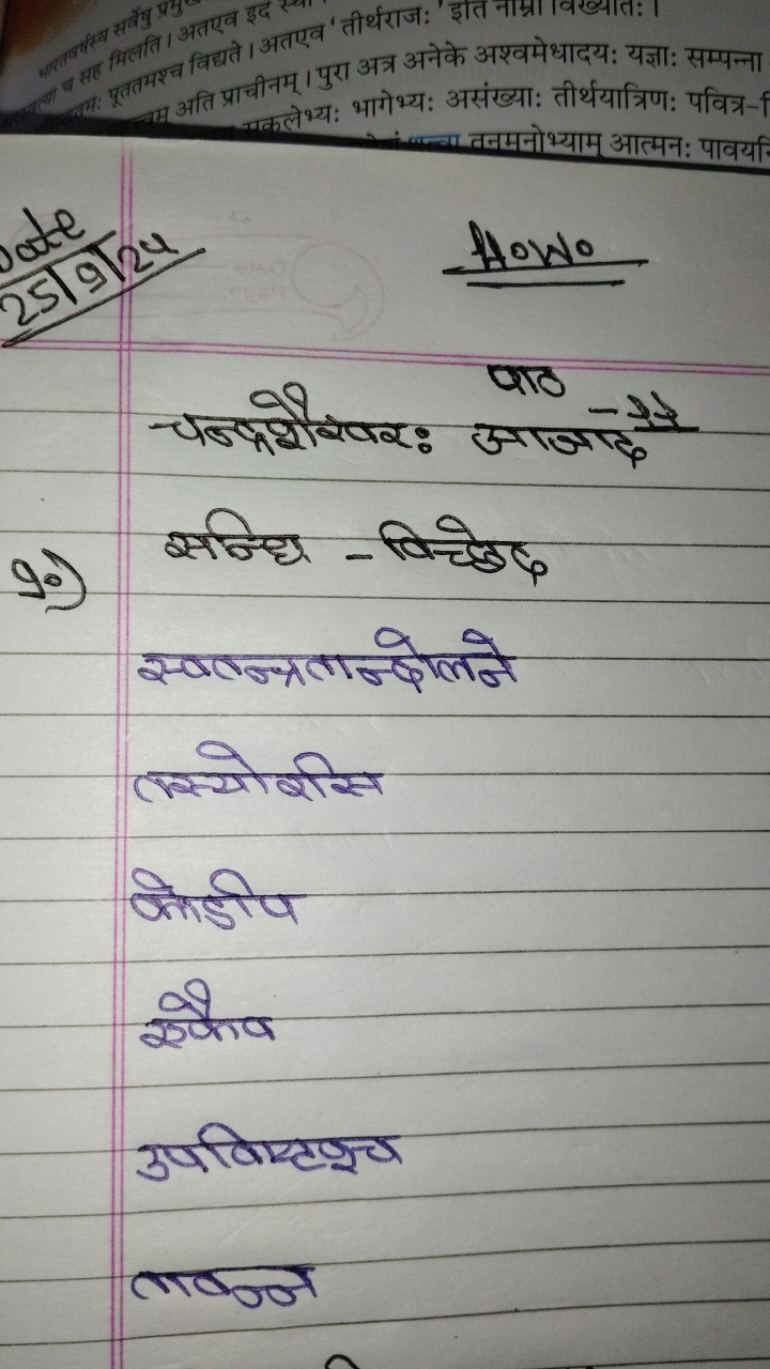 भारतवर्षस्य सर्वेषु
च सह मिलति। अतएव इदं
पूततमश्च विद्यते। अतएव 'तीर्थराजः' इति नाम्ना विख्यातः।
अति प्राचीनम्। पुरा अत्र अनेके अश्वमेधादयः यज्ञाः सम्पन्ना
भागेभ्यः असंख्याः तीर्थयात्रिणः पवित्र-
तनमनोभ्याम् आत्मनः
Date
25/9/24
H.W.
पाठ - ११
चन्द्रशेखरः आजाद
१०) सन्धि - विच्छेद
स्वतन्त्रतान्दोलने
तस्योरसि
कोडपि
एकैव
उपविष्टश्च
तावन्न